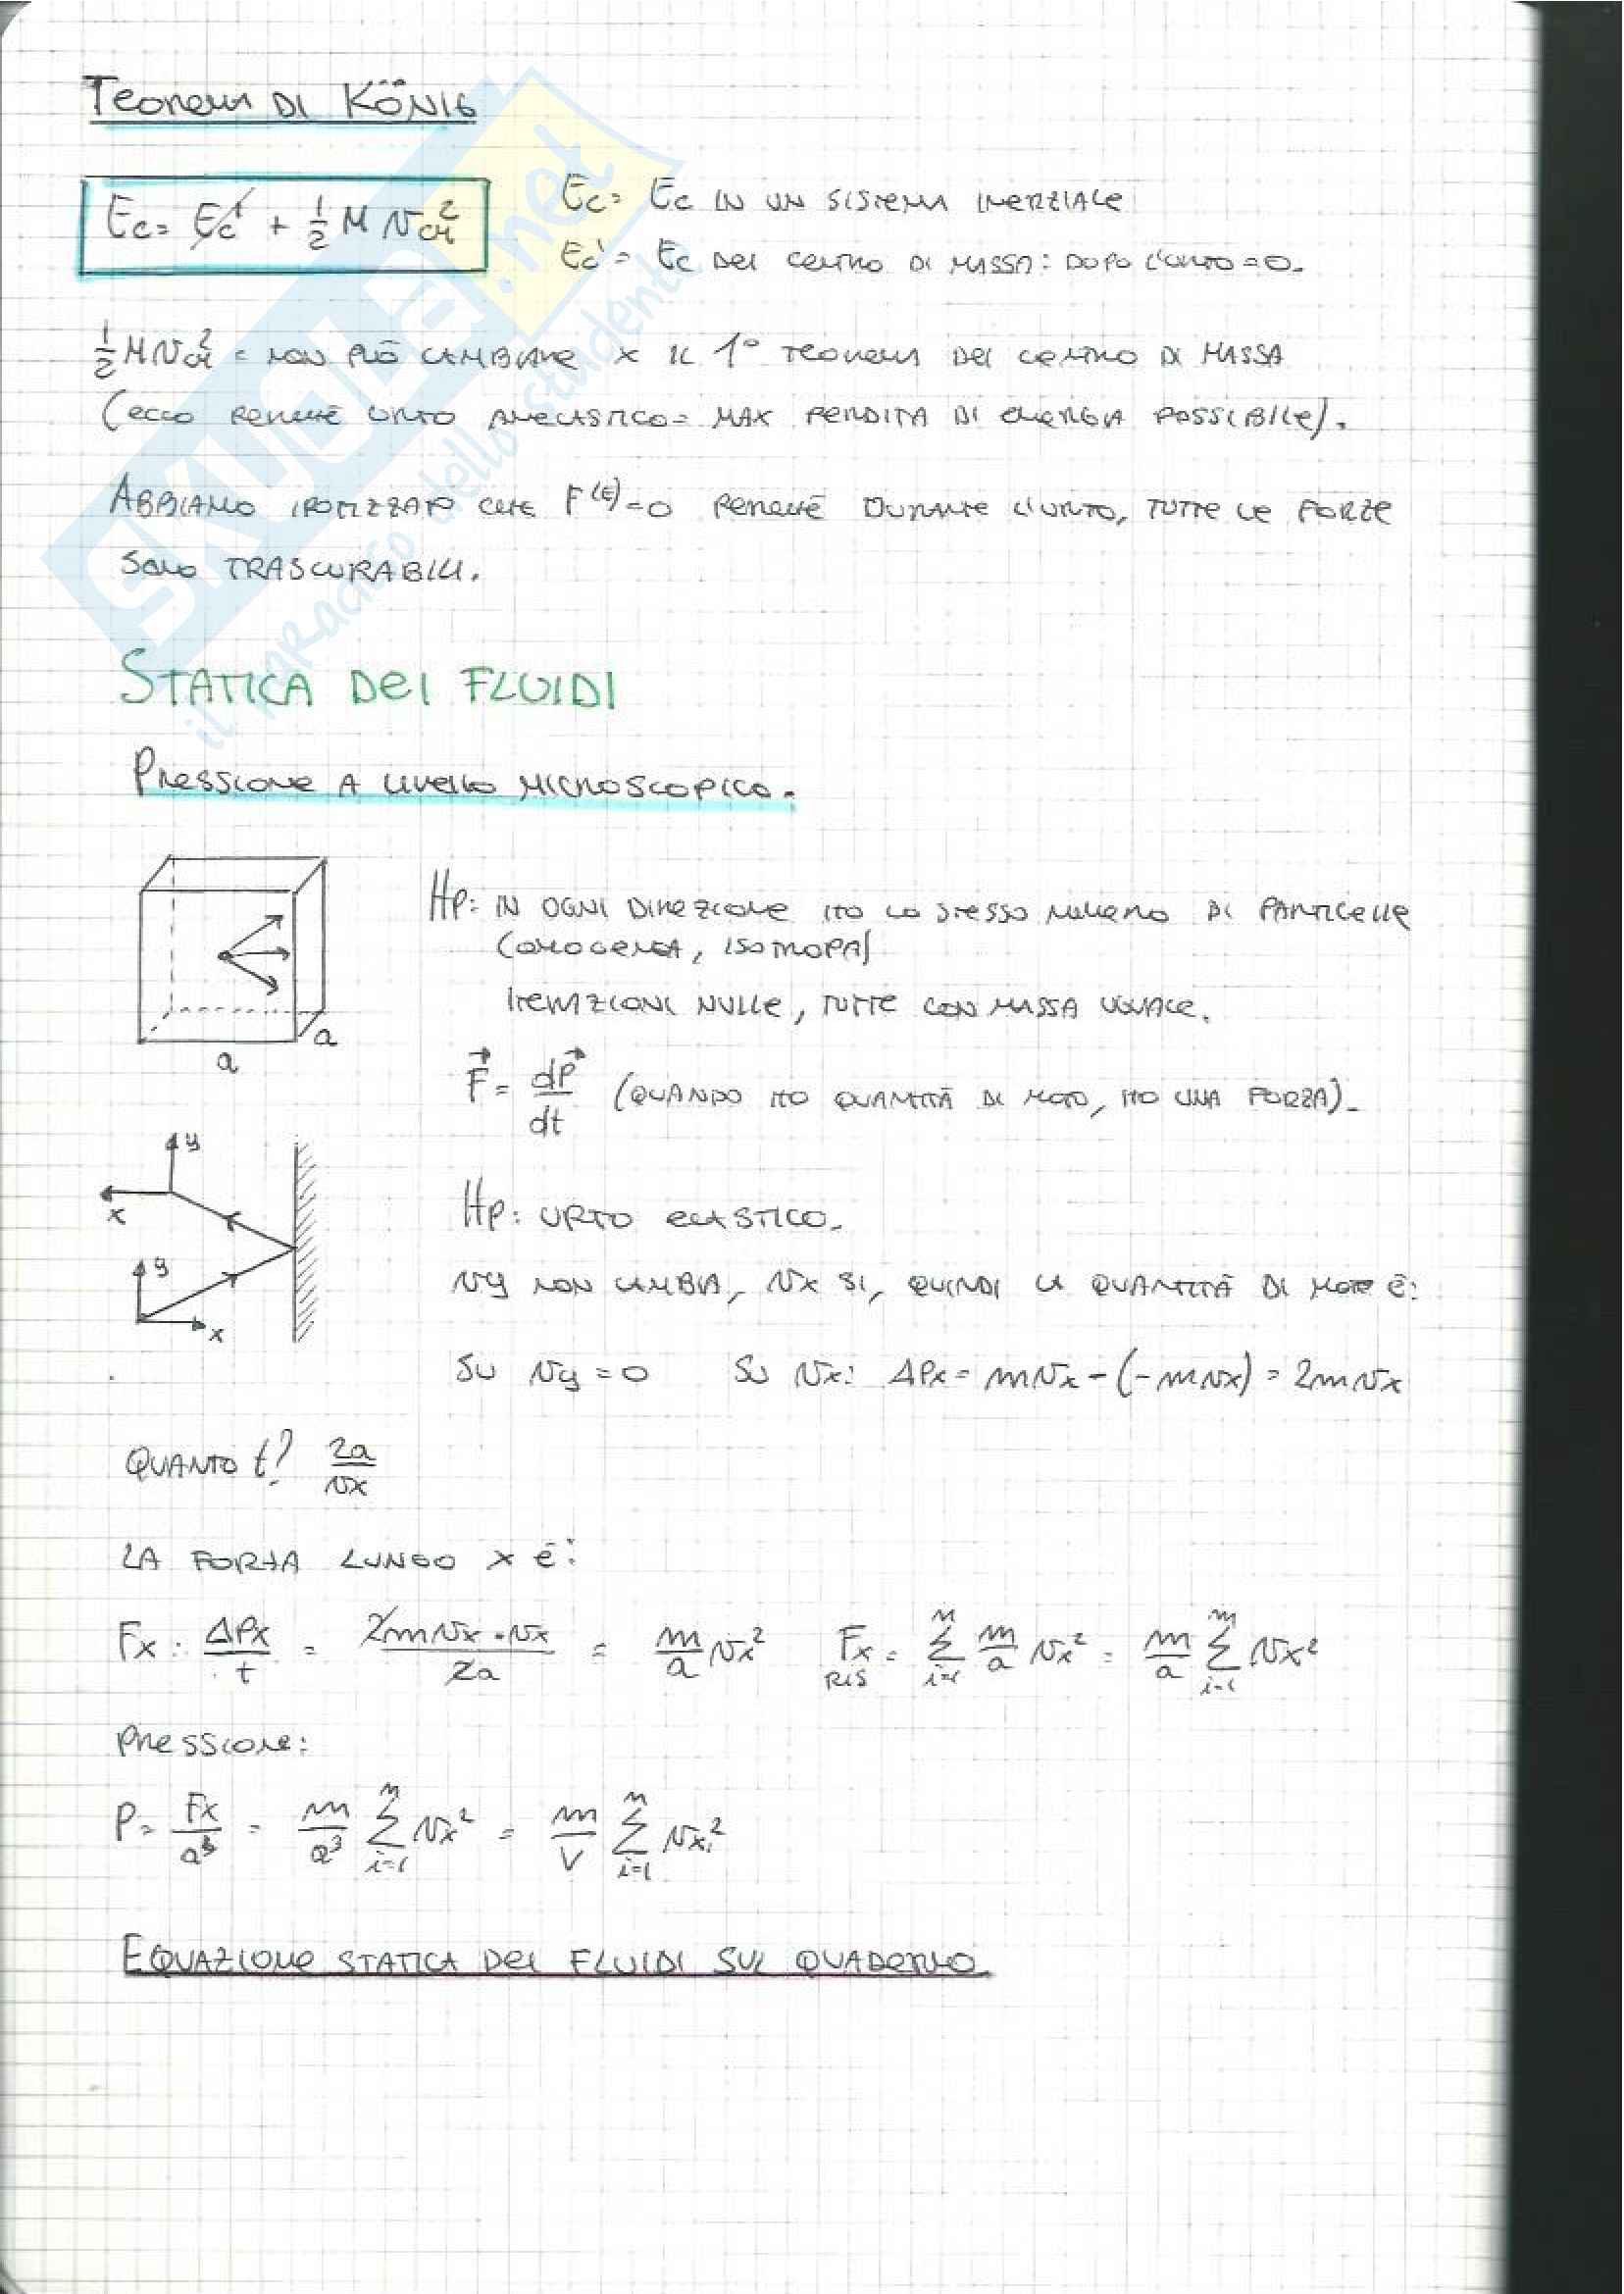 TEOREMA DI KÖNIG
Ec = Ec' + 1/2 M Vcm²
Ec = Ec IN UN SISTEMA INERZIALE
Ec' = Ec DEL CENTRO DI MASSA: DOPO L'URTO = 0.
1/2 M Vcm² = NON PUÒ CAMBIARE X IL 1° TEOREMA DEL CENTRO DI MASSA
(ECCO PERCHÉ URTO ANELASTICO = MAX PERDITA DI ENERGIA POSSIBILE).
ABBIAMO IPOTIZZATO CHE F^(E) = 0 PERCHÉ DURANTE L'URTO, TUTTE LE FORZE
SONO TRASCURABILI.
STATICA DEI FLUIDI
PRESSIONE A LIVELLO MICROSCOPICO.
Hp: IN OGNI DIREZIONE HO LO STESSO NUMERO DI PARTICELLE
(OMOGENEA, ISOTROPA)
NULLE, TUTTE CON MASSA UGUALE.
a
a
F⃗ = dP⃗/dt (QUANDO HO QUANTITÀ DI MOTO, HO UNA FORZA).
y
x
y
x
Hp: URTO ELASTICO.
Vy NON CAMBIA, Vx SI, QUINDI LA QUANTITÀ DI MOTO È:
SU Vy = 0 SU Vx: ΔPx = mVx - (-mVx) = 2mVx
QUANTO t? 2a/Vx
LA FORZA LUNGO X È:
Fx: ΔPx/t = 2mVx·Vx/2a = m/a Vx² Fx RIS = Σ i=1 n m/a Vx² = m/a Σ i=1 n Vx²
PRESSIONE:
P = Fx/a² = m/a³ Σ i=1 n Vx² = m/V Σ i=1 n Vxi²
EQUAZIONE STATICA DEI FLUIDI SUL QUADERNO
SKUOLA.net
il paradiso dello studente